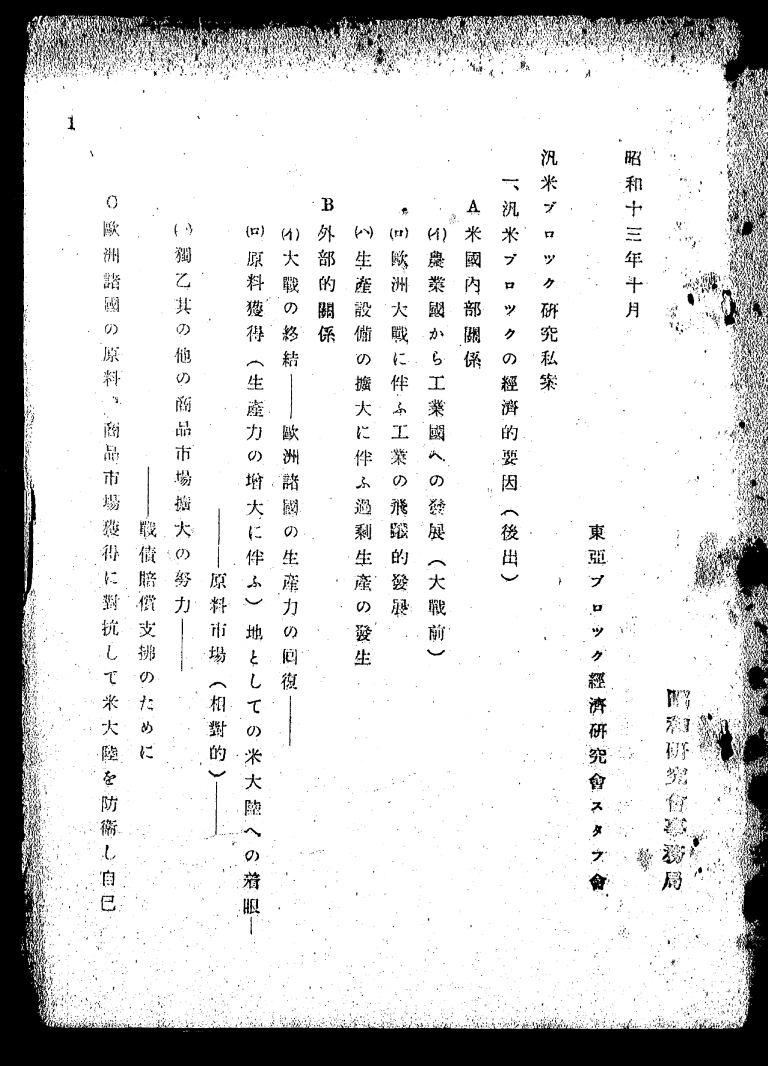 昭和研究會事務局
昭和十三年十月
東亞ブロツク經濟研究會スタフ會
汎米ブロツク研究私案
一、汎米ブロツクの經濟的要因（後出）
A 米國內部關係
(イ) 農業國から工業國への發展（大戰前）
(ロ) 歐洲大戰に伴ふ工業の飛躍的發展
(ハ) 生產設備の擴大に伴ふ過剩生產の發生
B 外部的關係
(イ) 大戰の終結――歐洲諸國の生產力の回復――
(ロ) 原料獲得（生產力の增大に伴ふ）地としての米大陸への着眼―
――原料市場（相對的）――
(ハ) 獨乙其の他の商品市場擴大の努力――
――戰債賠償支拂のために
○歐洲諸國の原料、商品市場獲得に對抗して米大陸を防衞し自己
1